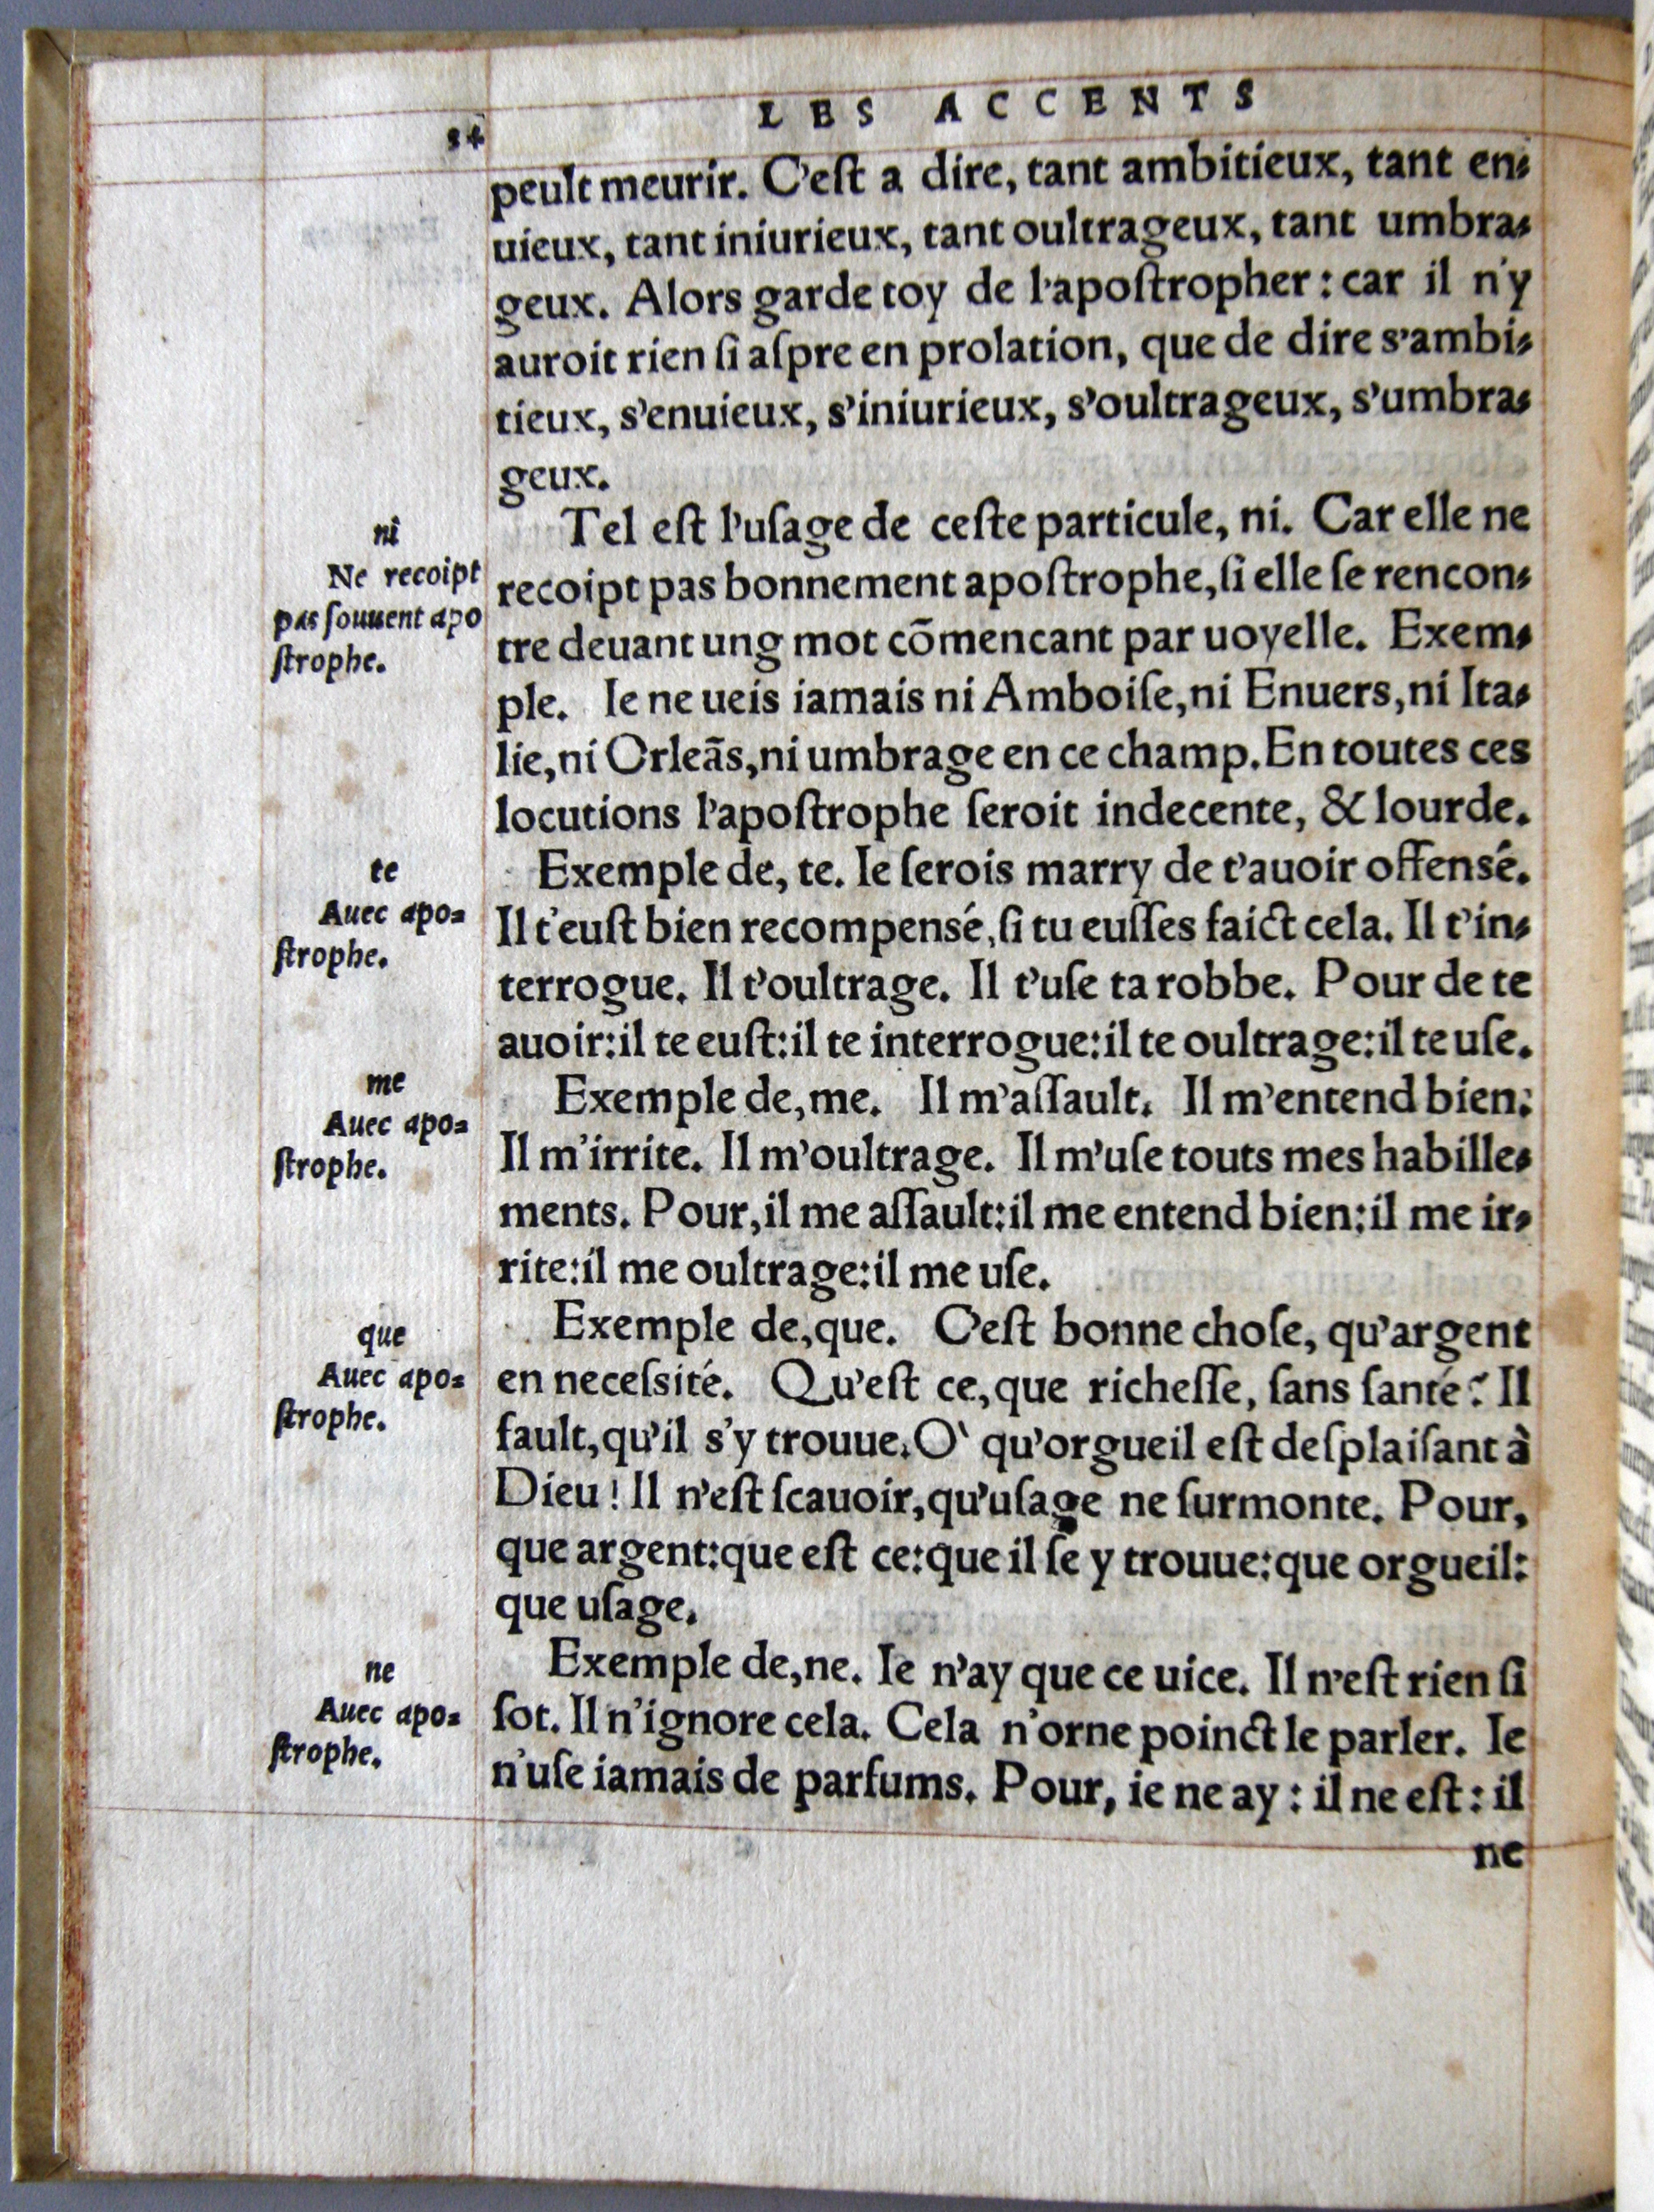 LES ACCENTS
34
peult meurir. C'eſt a dire, tant ambitieux, tant en⸗
uieux, tant iniurieux, tant oultrageux, tant umbra⸗
geux. Alors garde toy de l'apoſtropher: car il n'y
auroit rien ſi aſpre en prolation, que de dire s'ambi⸗
tieux, s'enuieux, s'iniurieux, s'oultrageux, s'umbra⸗
geux.
ni
Ne recoipt
pas ſouuent apo
ſtrophe.
Tel eſt l'uſage de ceſte particule, ni. Car elle ne
recoipt pas bonnement apoſtrophe, ſi elle ſe rencon⸗
tre deuant ung mot cōmencant par uoyelle. Exem⸗
ple. Ie ne ueis iamais ni Amboiſe, ni Enuers, ni Ita⸗
lie, ni Orleãs, ni umbrage en ce champ. En toutes ces
locutions l'apoſtrophe ſeroit indecente, & lourde.
te
Auec apo⸗
ſtrophe.
Exemple de, te. Ie ſerois marry de t'auoir offensé.
Il t'euſt bien recompensé, ſi tu euſſes faict cela. Il t'in⸗
terrogue. Il t'oultrage. Il t'uſe ta robbe. Pour de te
auoir: il te euſt: il te interrogue: il te oultrage: il te uſe.
me
Auec apo⸗
ſtrophe.
Exemple de, me. Il m'aſſault. Il m'entend bien:
Il m'irrite. Il m'oultrage. Il m'uſe touts mes habille⸗
ments. Pour, il me aſſault: il me entend bien: il me ir⸗
rite: il me oultrage: il me uſe.
que
Auec apo⸗
ſtrophe.
Exemple de, que. C'eſt bonne choſe, qu'argent
en neceſsité. Qu'eſt ce, que richeſſe, ſans ſanté? Il
fault, qu'il s'y trouue. O` qu'orgueil eſt deſplaiſant à
Dieu! Il n'eſt ſcauoir, qu'uſage ne ſurmonte. Pour,
que argent: que eſt ce: que il ſe y trouue: que orgueil:
que uſage.
ne
Auec apo⸗
ſtrophe.
Exemple de, ne. Ie n'ay que ce uice. Il n'eſt rien ſi
ſot. Il n'ignore cela. Cela n'orne poinct le parler. Ie
n'uſe iamais de parfums. Pour, ie ne ay: il ne eſt: il
ne